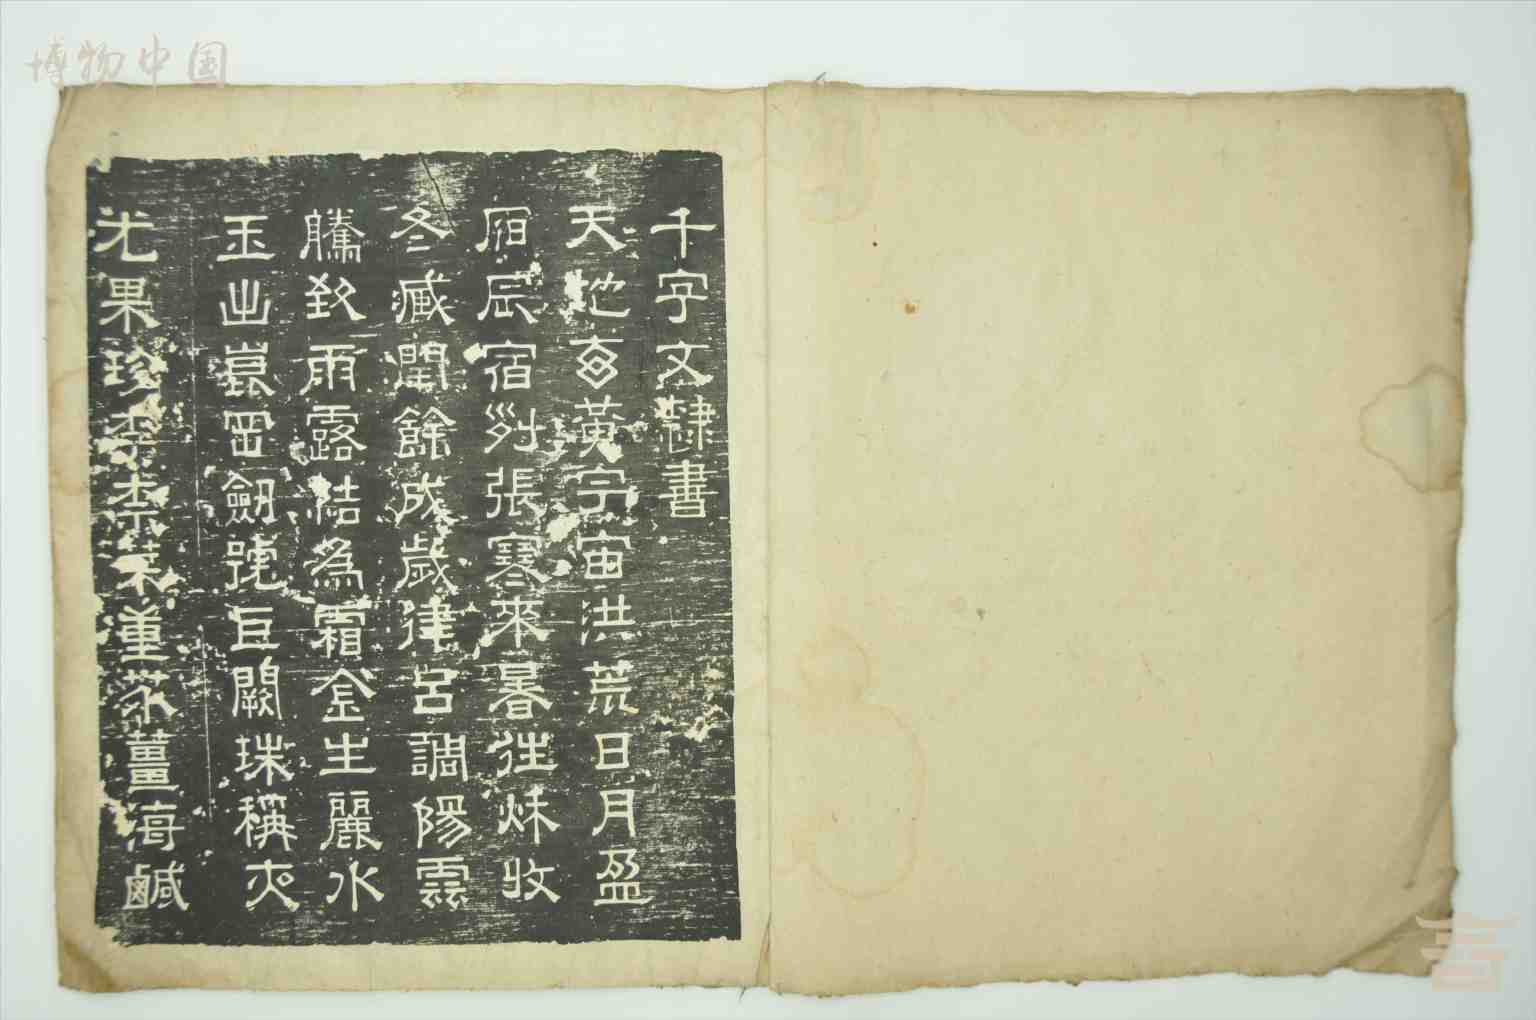 千字文隸書
天地玄黃宇宙洪荒日月盈
昃辰宿列張寒來暑往秌收
冬藏閏餘成歲律呂調陽雲
騰致雨露結為霜金生麗水
玉出崑岡劒號巨闕珠稱夜
光果珍李柰菜重芥薑海鹹
博物中国